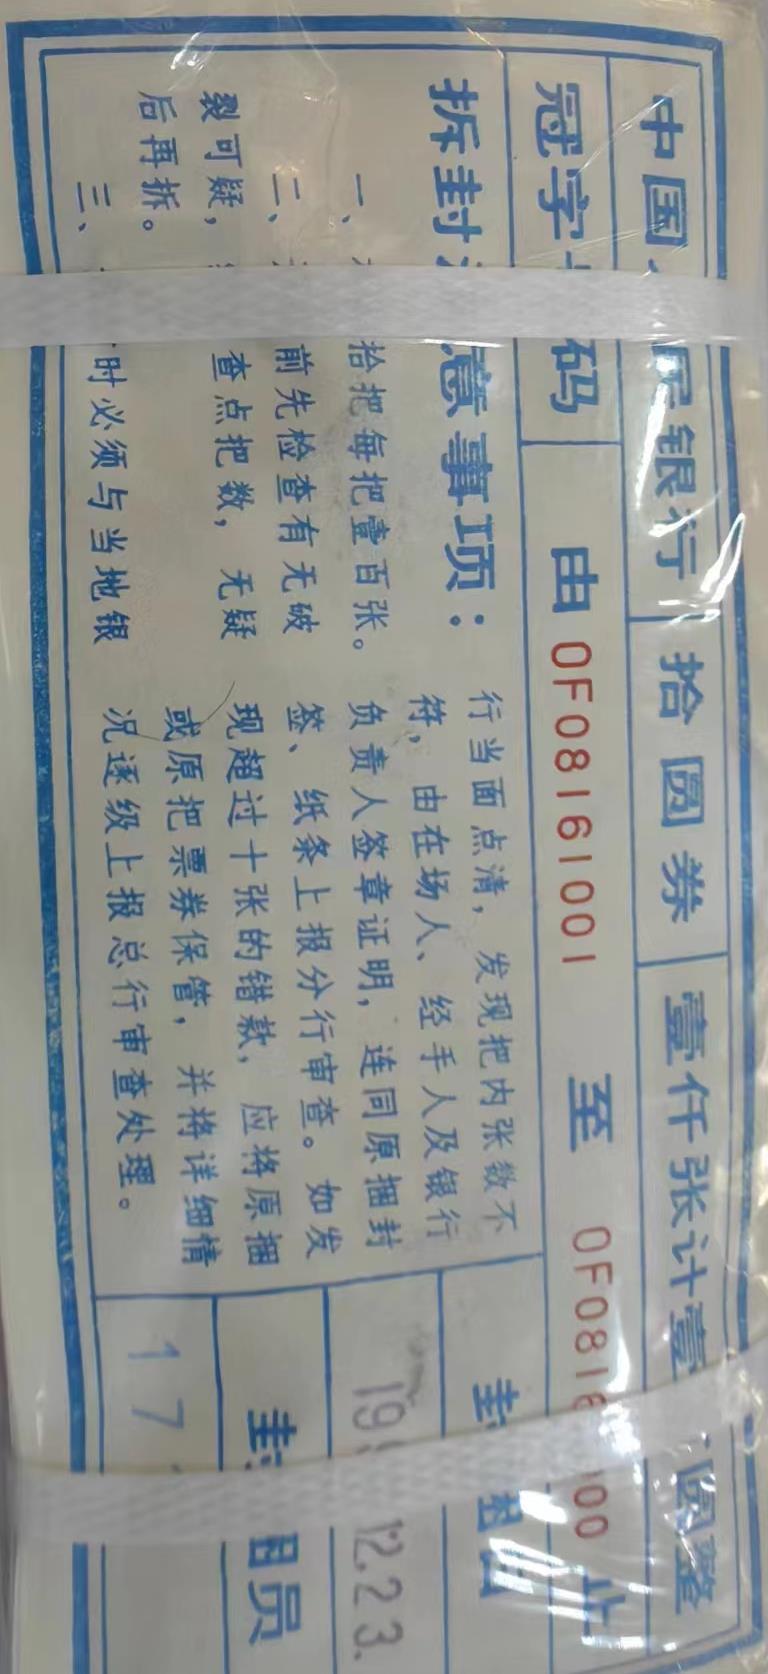 中国 民银行 拾圆券 壹仟张计壹 圆整
冠字 码 由 0F08161001 至 0F0816 00 止
拆封 意事项：
一、 拾把每把壹百张。
二、 前先检查有无破
裂可疑， 查点把数，无疑
后再拆。
三、 时必须与当地银
行当面点清，发现把内张数不
符，由在场人、经手人及银行
负责人签章证明，连同原捆封
签、纸条上报分行审查。如发
现超过十张的错款，应将原捆
或原把票券保管，并将详细情
况逐级上报总行审查处理。
封
19 12.23.
封 员
17